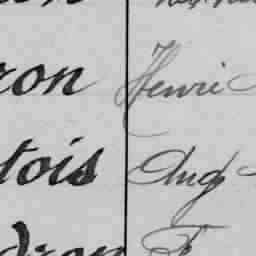 ron Henri
tois Aug
dron